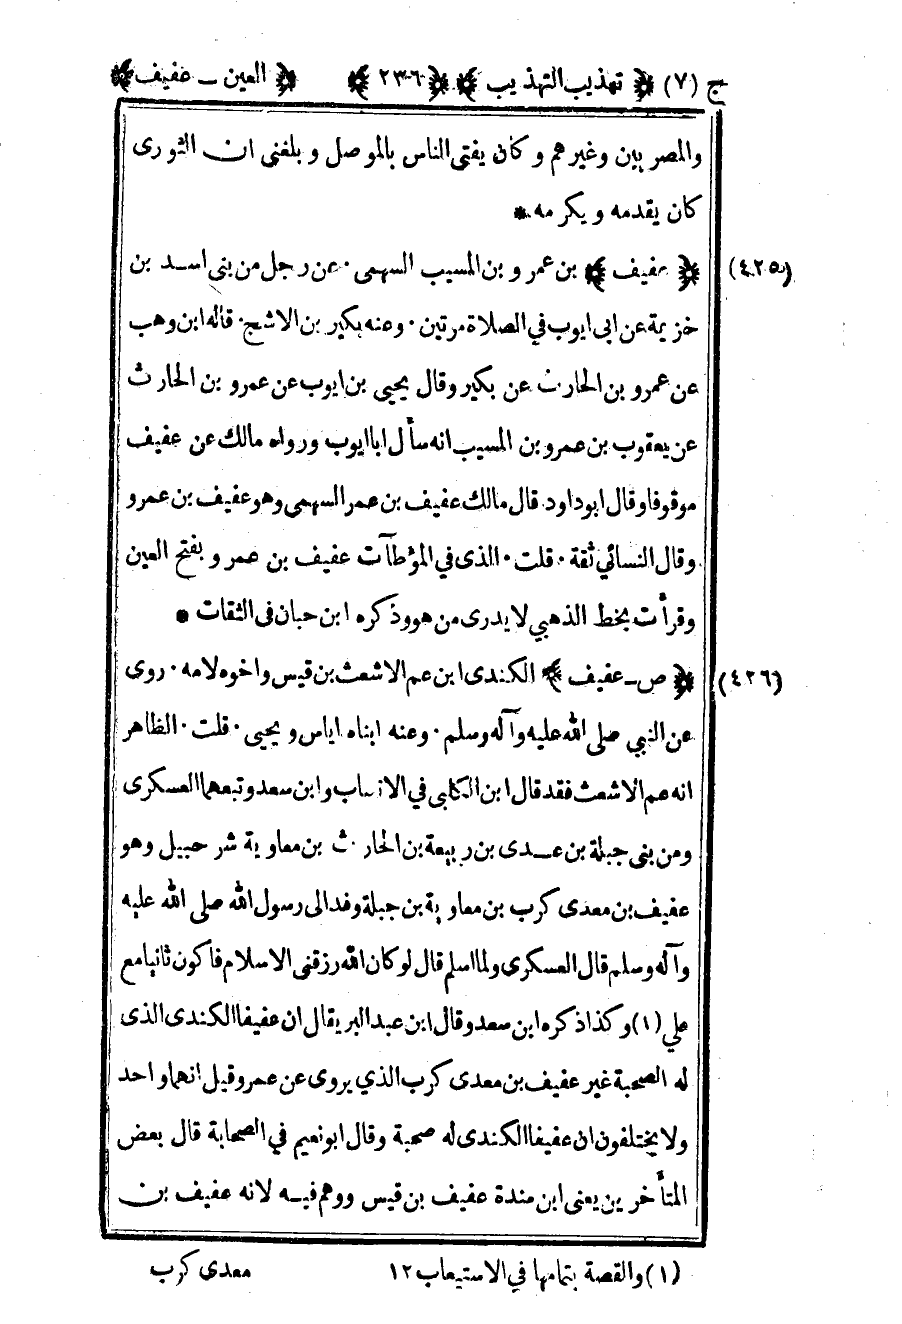 ج (٧) ﴿ تهذيب التهذيب ﴾ ﴿ ٢٣٦ ﴾ ﴿ العين ـ عفيف ﴾
والمصريين وغيرهم وكان يفتى الناس بالموصل وبلغنى ان الثورى
كان يقدمه ويكرمه *
(٤٢٥) ﴿ عفيف ﴾ بن عمرو بن المسيب السهمى · عن رجل من بنى اسد بن
خزيمة عن ابى ايوب في الصلاة مرتين · وعنه بكير بن الاشج · قاله ابن وهب
عن عمرو بن الحارث عن بكير وقال يحيى بن ايوب عن عمرو بن الحارث
عن يعقوب بن عمرو بن المسيب انه سأل ابا ايوب ورواه مالك عن عفيف
موقوفا وقال ابوداود قال مالك عفيف بن عمر السهمى وهو عفيف بن عمرو
وقال النسائي ثقة · قلت · الذى في المؤطآت عفيف بن عمرو بفتح العين
وقرأت بخط الذهبي لا يدرى من هو وذكره ابن حبان فى الثقات *
(٤٢٦) ﴿ ص ـ عفيف ﴾ الكندى ابن عم الاشعث بن قيس واخوه لامه · روى
عن النبي صلى الله عليه وآله وسلم · وعنه ابناه اياس ويحيى · قلت · الظاهر
انه عم الاشعث فقد قال ابن الكلبى في الانساب وابن سعد وتبعهما العسكرى
ومن بنى جبلة بن عدى بن ربيعة بن الحارث بن معاوية شرحبيل وهو
عفيف بن معدى كرب بن معاوية بن جبلة وفد الى رسول الله صلى الله عليه
وآله وسلم قال العسكرى ولما اسلم قال لو كان الله رزقنى الاسلام فاكون ثانيا مع
علي (١) وكذا ذكره ابن سعد وقال ابن عبد البر يقال ان عفيفا الكندى الذى
له الصحبة غير عفيف بن معدى كرب الذي يروى عن عمر وقيل انهما واحد
ولا يختلفون ان عفيفا الكندى له صحبة وقال ابونعيم في الصحابة قال بعض
المتأخرين يعنى ابن مندة عفيف بن قيس ووهم فيه لانه عفيف بن
(١) والقصة بتمامها في الاستيعاب ١٢ معدى كرب